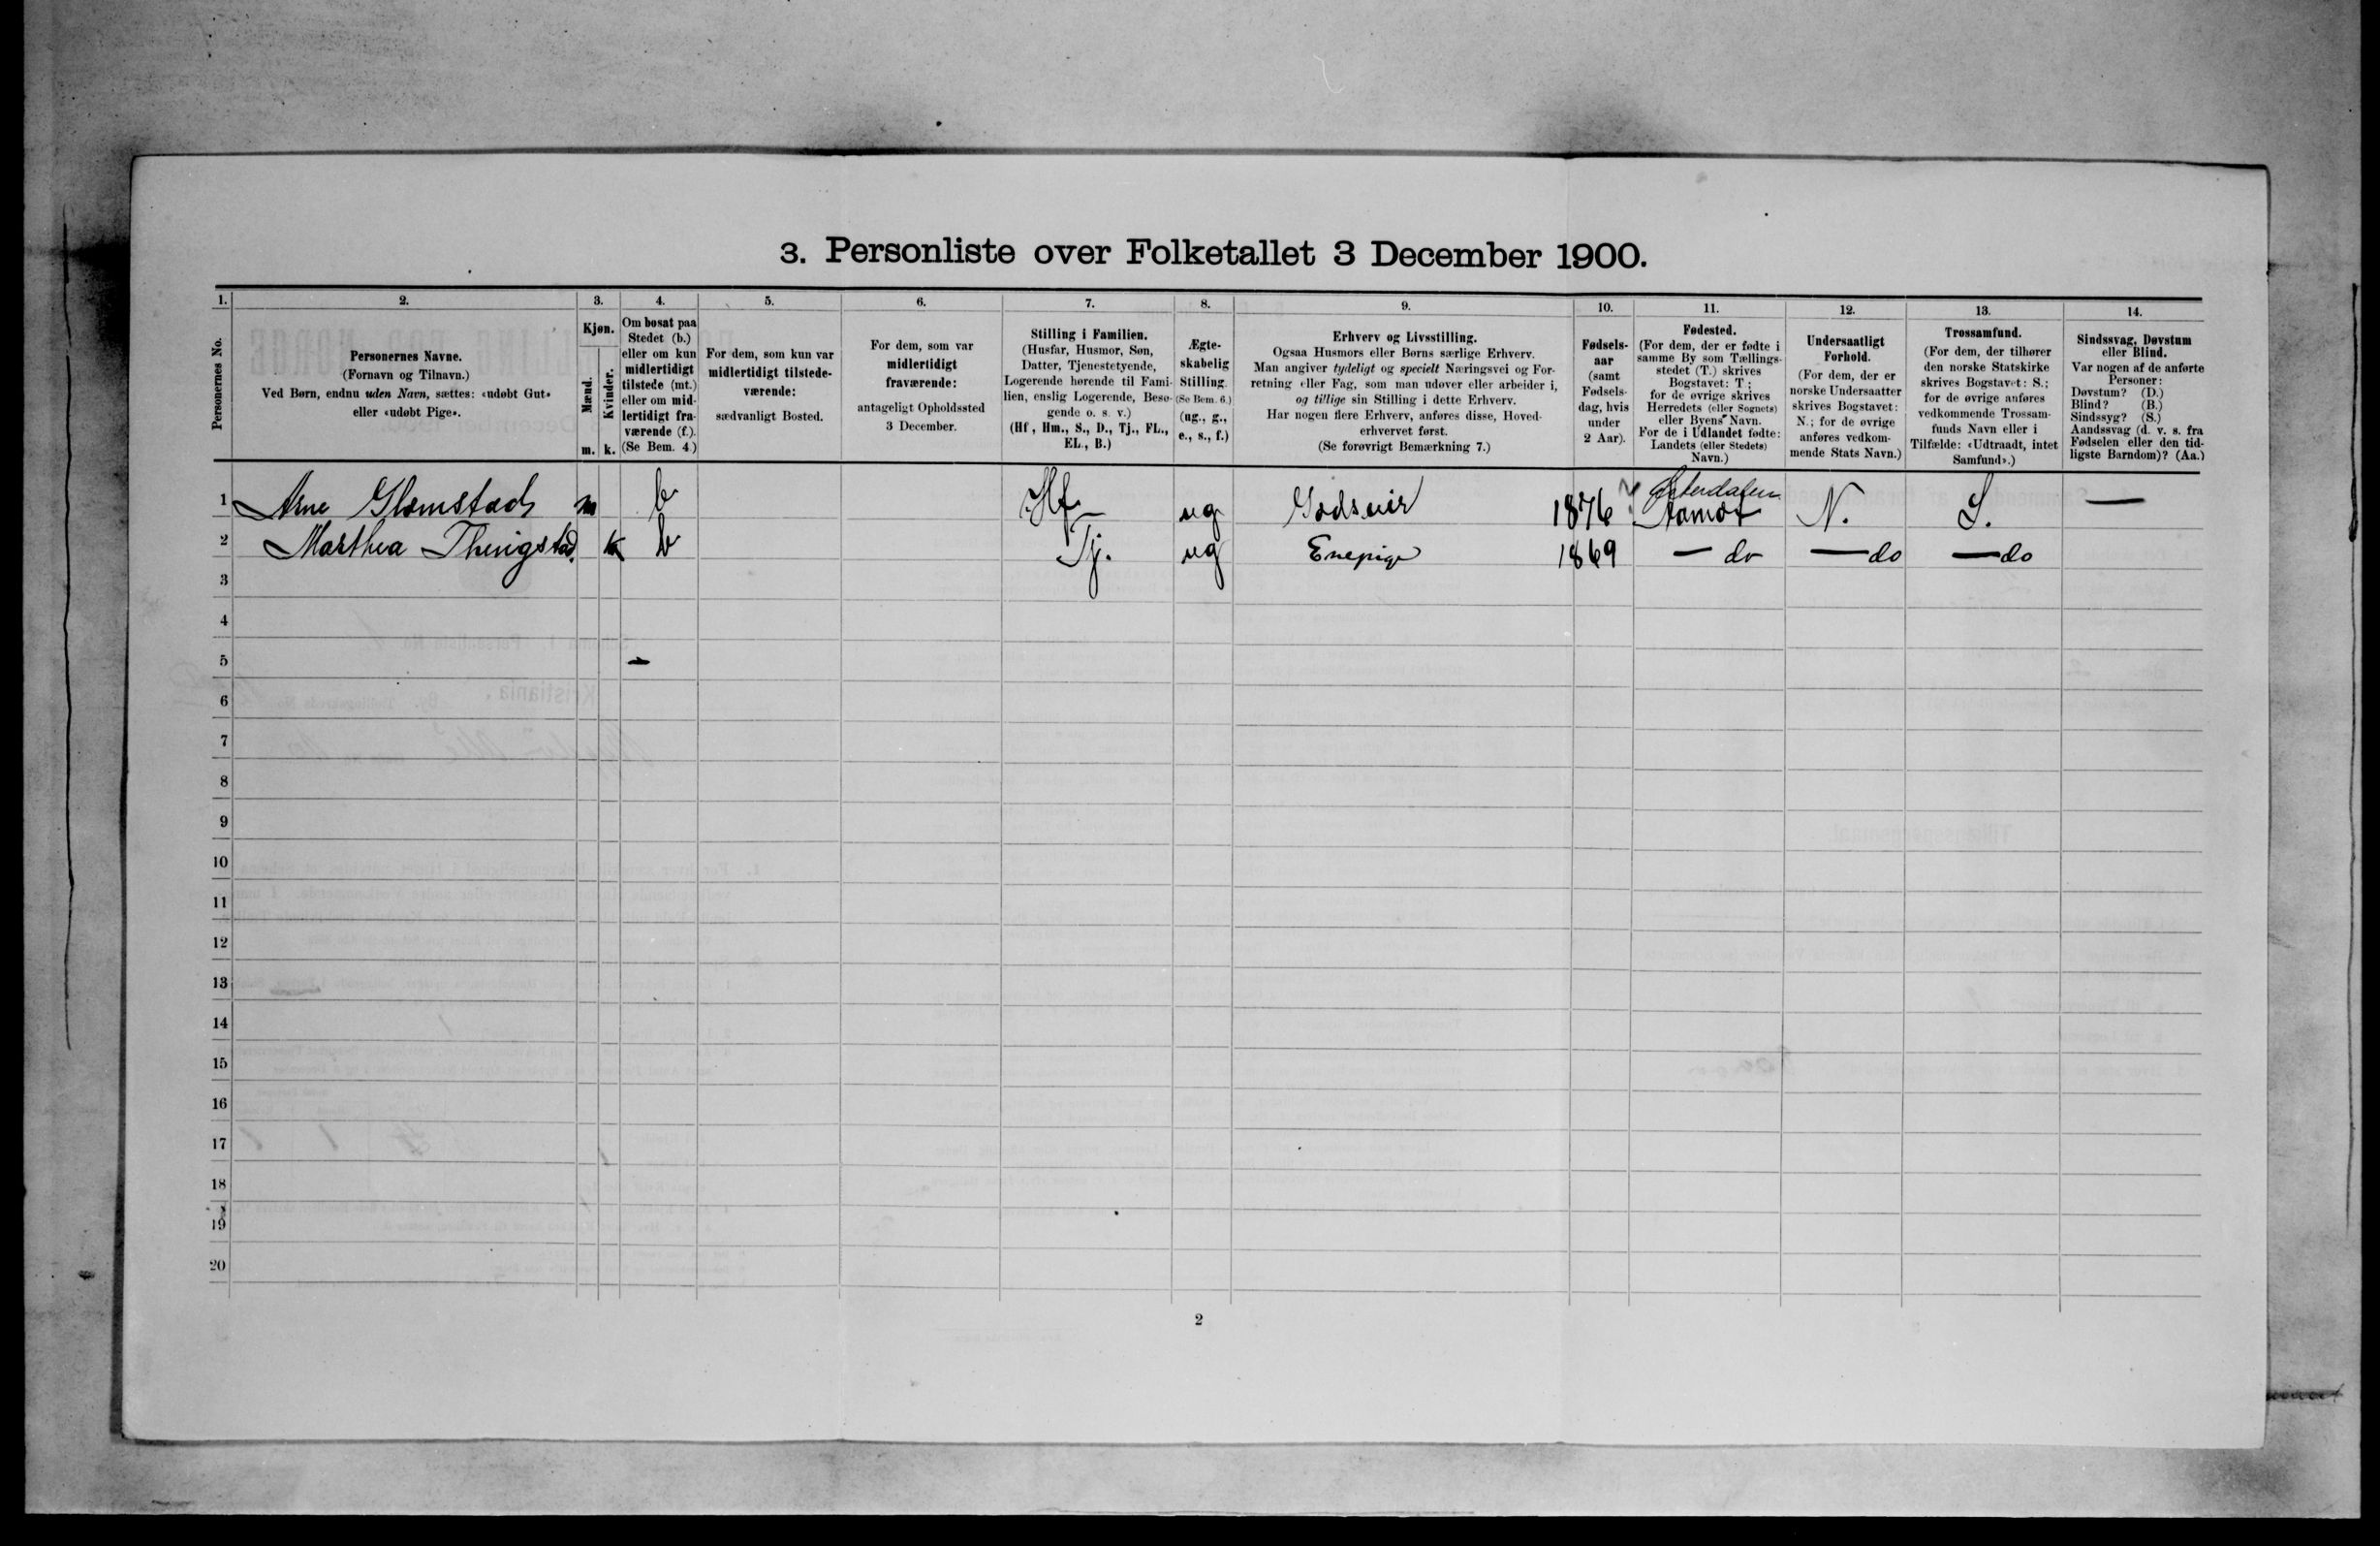 3. Personliste over Folketallet 3 December 1900.
1. 2. 3. 4. 5. 6. 7. 8. 9. 10. 11. 12. 13. 14.
Personernes No.
Personernes Navne.
(Fornavn og Tilnavn.)
Ved Børn, endnu uden Navn, sættes: «udøbt Gut»
eller «udøbt Pige».
Kjøn.
Mænd.
Kvinder.
m. k.
Om bosat paa
Stedet (b.)
eller om kun
midlertidigt
tilstede (mt.)
eller om mid-
lertidigt fra-
værende (f.).
(Se Bem. 4.)
For dem, som kun var
midlertidigt tilstede-
værende:
sædvanligt Bosted.
For dem, som var
midlertidigt
fraværende:
antageligt Opholdssted
3 December.
Stilling i Familien.
(Husfar, Husmor, Søn,
Datter, Tjenestetyende,
Logerende hørende til Fami-
lien, enslig Logerende, Besø-
gende o. s. v.)
(Hf, Hm., S., D., Tj., FL.,
EL., B.)
Ægte-
skabelig
Stilling.
(Se Bem. 6.)
(ug., g.,
e., s., f.)
Erhverv og Livsstilling.
Ogsaa Husmors eller Børns særlige Erhverv.
Man angiver tydeligt og specielt Næringsvei og For-
retning eller Fag, som man udøver eller arbeider i,
og tillige sin Stilling i dette Erhverv.
Har nogen flere Erhverv, anføres disse, Hoved-
erhvervet først.
(Se forøvrigt Bemærkning 7.)
Fødsels-
aar
(samt
Fødsels-
dag, hvis
under
2 Aar).
Fødested.
(For dem, der er fødte i
samme By som Tællings-
stedet (T.) skrives
Bogstavet: T;
for de øvrige skrives
Herredets (eller Sognets)
eller Byens Navn.
For de i Udlandet fødte:
Landets (eller Stedets)
Navn.)
Undersaatligt
Forhold.
(For dem, der er
norske Undersaatter
skrives Bogstavet:
N.; for de øvrige
anføres vedkom-
mende Stats Navn.)
Trossamfund.
(For dem, der tilhører
den norske Statskirke
skrives Bogstavet: S.;
for de øvrige anføres
vedkommende Trossam-
funds Navn eller i
Tilfælde: «Udtraadt, intet
Samfund».)
Sindssvag, Døvstum
eller Blind.
Var nogen af de anførte
Personer:
Døvstum? (D.)
Blind? (B.)
Sindssyg? (S.)
Aandssvag (d. v. s. fra
Fødselen eller den tid-
ligste Barndom)? (Aa.)
Østerdalen
1 Arne Glømstad m b Hf ug Godseier 1876 Aamot N. S. —
2 Marthea Thingstad k b Tj. ug Enepige 1869 — do — do — do
3
4
5
6
7
8
9
10
11
12
13
14
15
16
17
18
19
20
2